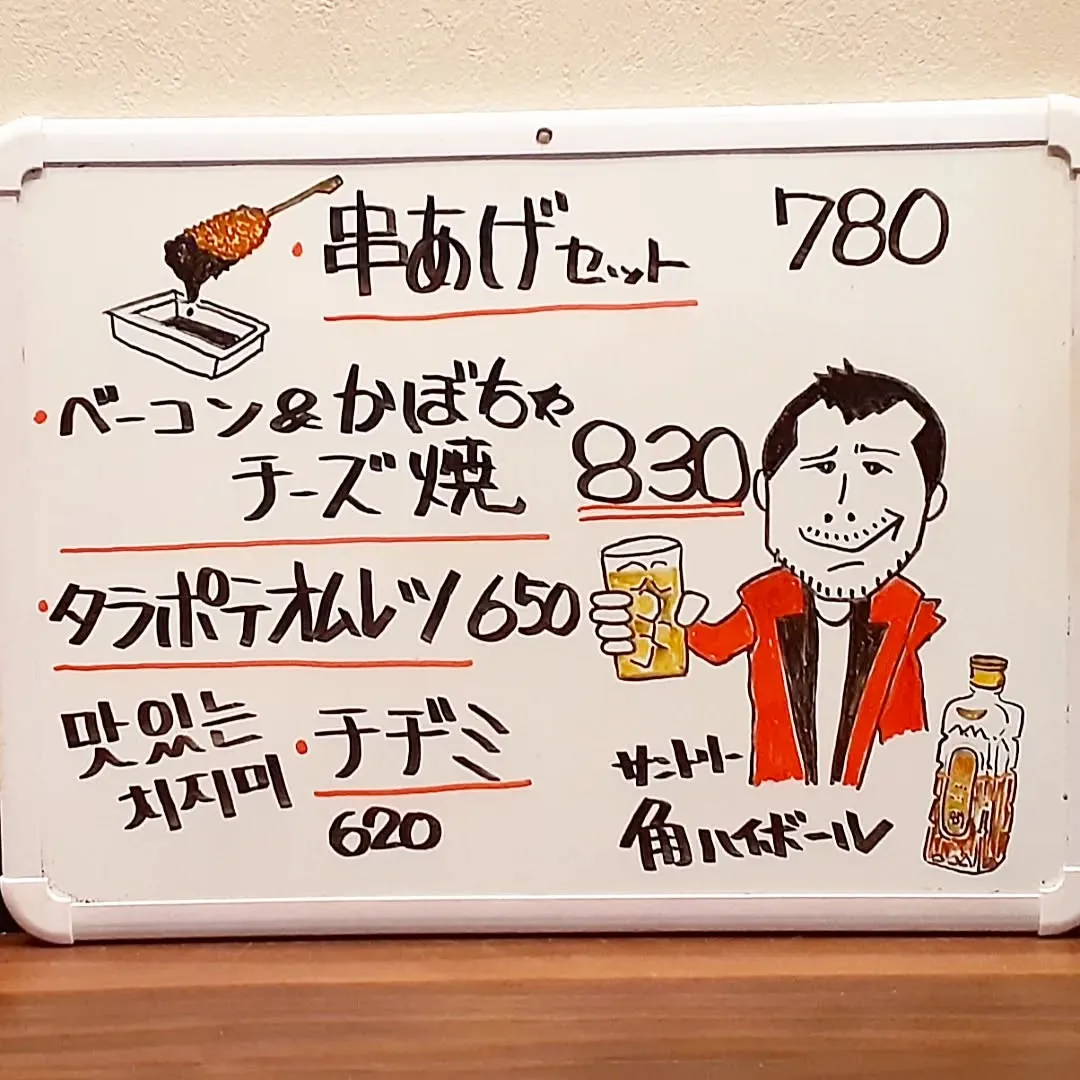 ・串あげセット 780
・ベーコン&かぼちゃ
チーズ焼 830
・タラポテオムレツ 650
맛있는
치지미
・チヂミ
620
サントリー
角ハイボール